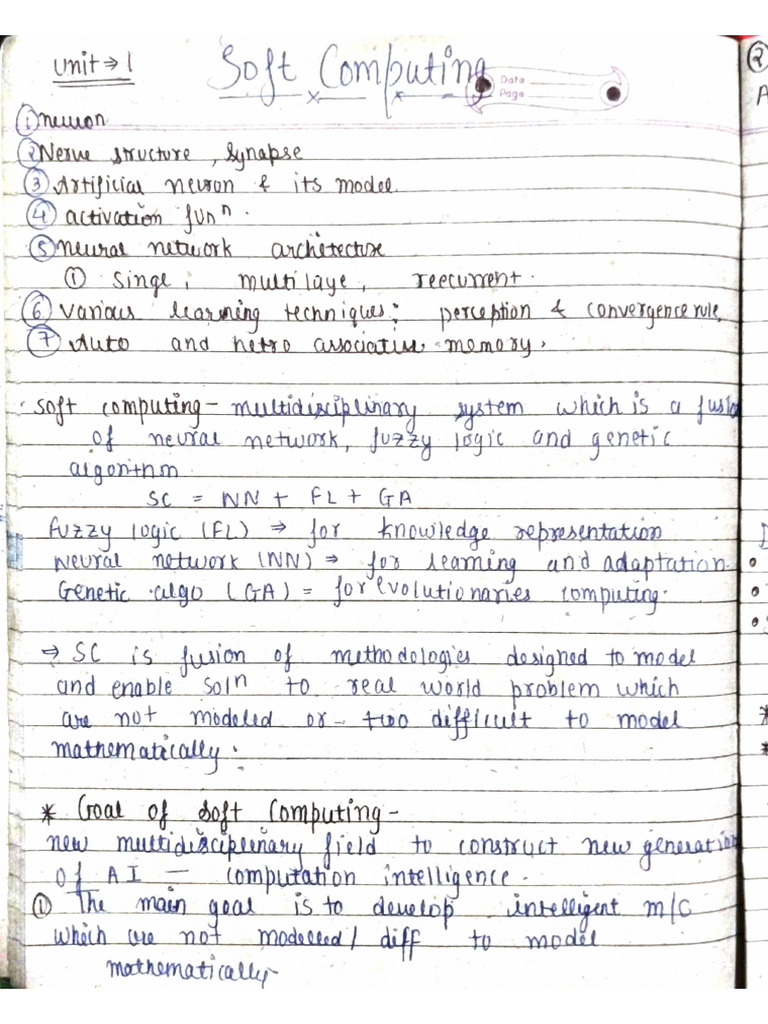 Unit → 1
Soft Computing
Data
Page
① neuron
② Nerve structure, synapse
③ Artificial neuron & its model.
④ activation funⁿ.
⑤ neural network architecture
① Singl, multilaye, reecurrent.
⑥ various learning techniques: perception & convergence rule,
⑦ Auto and hetro associative memory.
soft computing - multidisciplinary system which is a fusio
of neural network, fuzzy logic and genetic
algorithm
SC = NN + FL + GA
fuzzy logic (FL) ⇒ for knowledge representation
Neural network (NN) ⇒ for learning and adaptation.
Genetic algo (GA) = for evolutionaries computing.
⇒ SC is fusion of methodologies designed to model
and enable solⁿ to real world problem which
are not modeled or too difficult to model
mathematically.
* Goal of soft Computing -
new multidisciplinary field to construct new generation
of AI — computation intelligence.
① The main goal is to develop intelligent m/c
which are not modelled / diff to model
mathematically
②
A